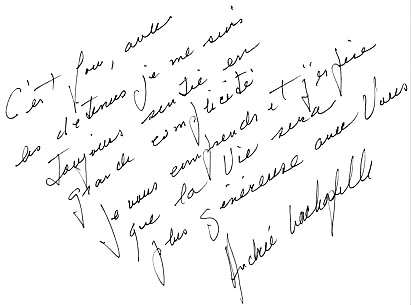 C'est fou, avec
les détenus je me suis
toujours sentie en
grande complicité
je vous comprends et j'espère
que la Vie sera
plus Généreuse avec Vous
Andrée Lachapelle